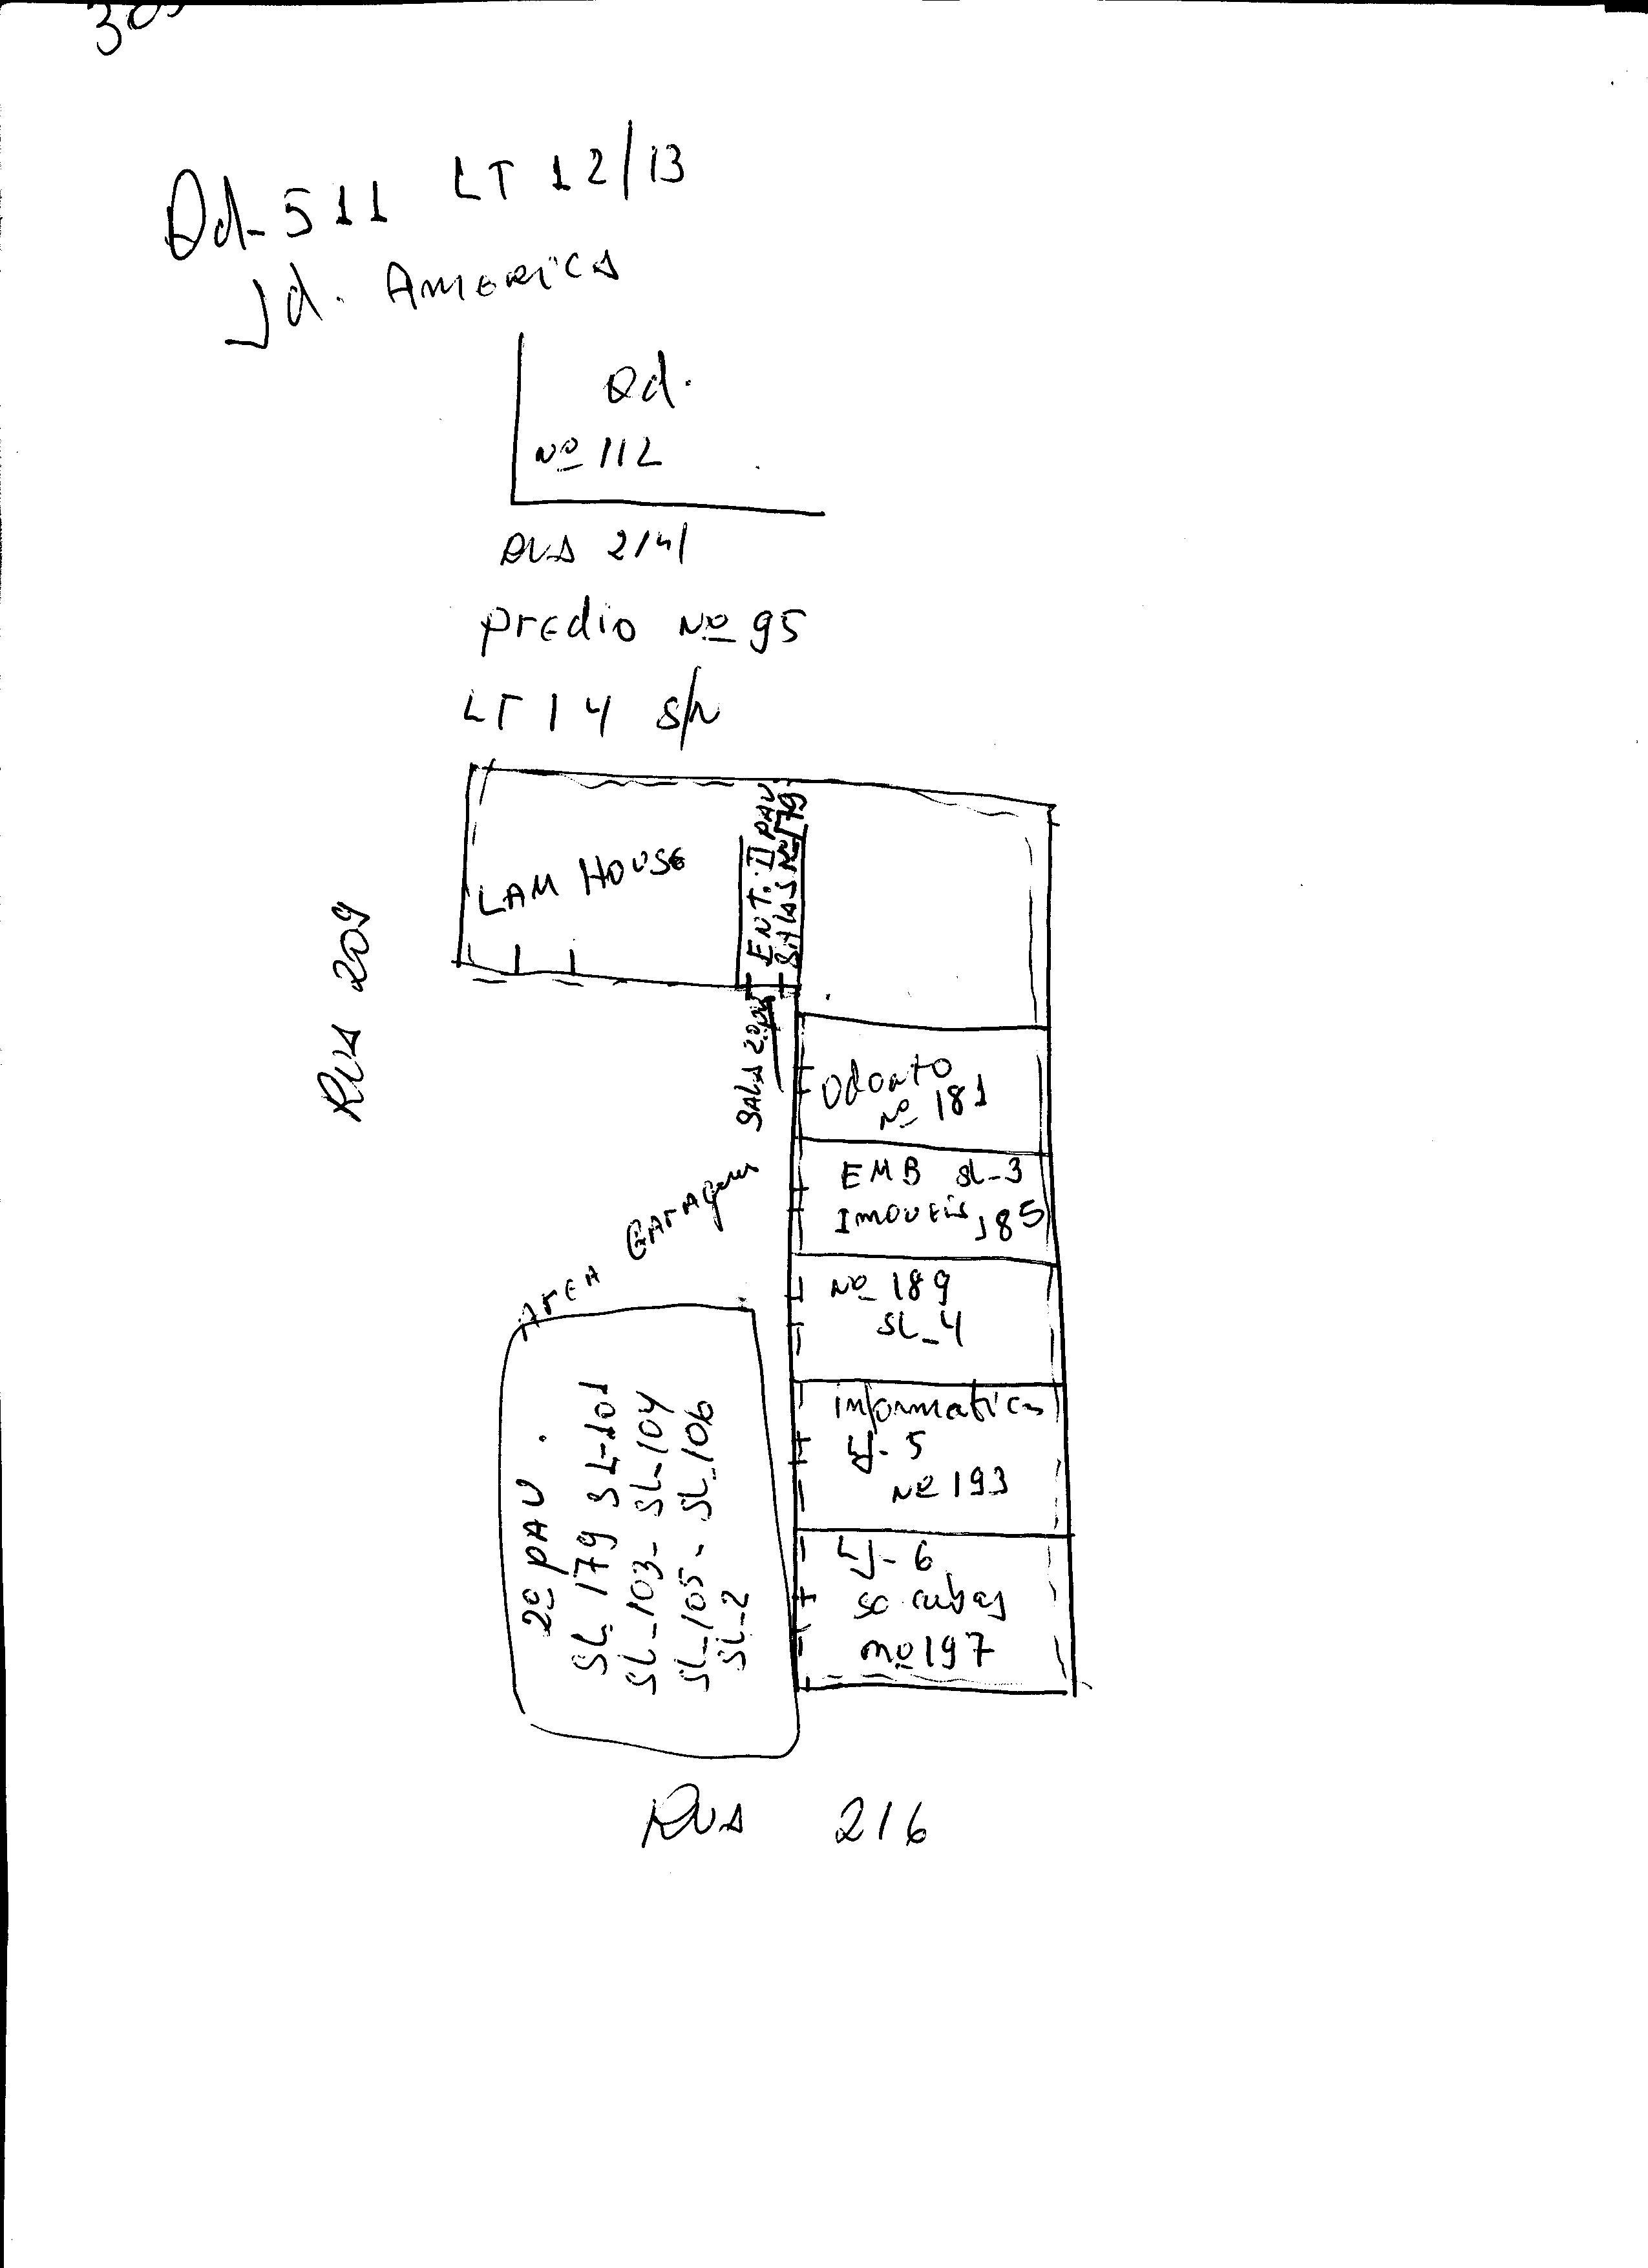 Qd-511 LT 12/13
Jd. America
Qd.
Nº 112
RUA 214
predio Nº 95
LT 14 s/n
LAM HOUSE
ENT. II PAV
SALAS Nº 179
RUA 209
SALA 2
Odonto
Nº 181
EMB SL-3
Imoveis 185
Area Garagem
Nº 189
SL-4
informatica
LJ-5
Nº 193
2º PAV.
SL 179 SL-101
SL-103-SL-104
SL-105-SL-106
SL-2
LJ-6
so cubas
nº 197
RUA 216